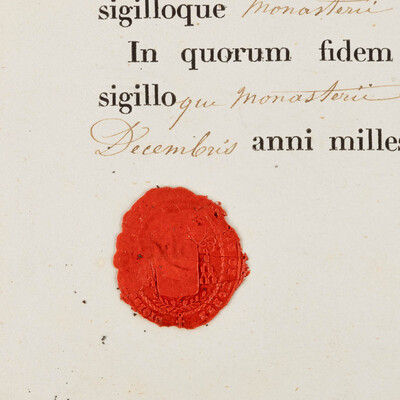 sigilloque Monasterii
In quorum fidem
sigilloque Monasterii
Decembris anni milles